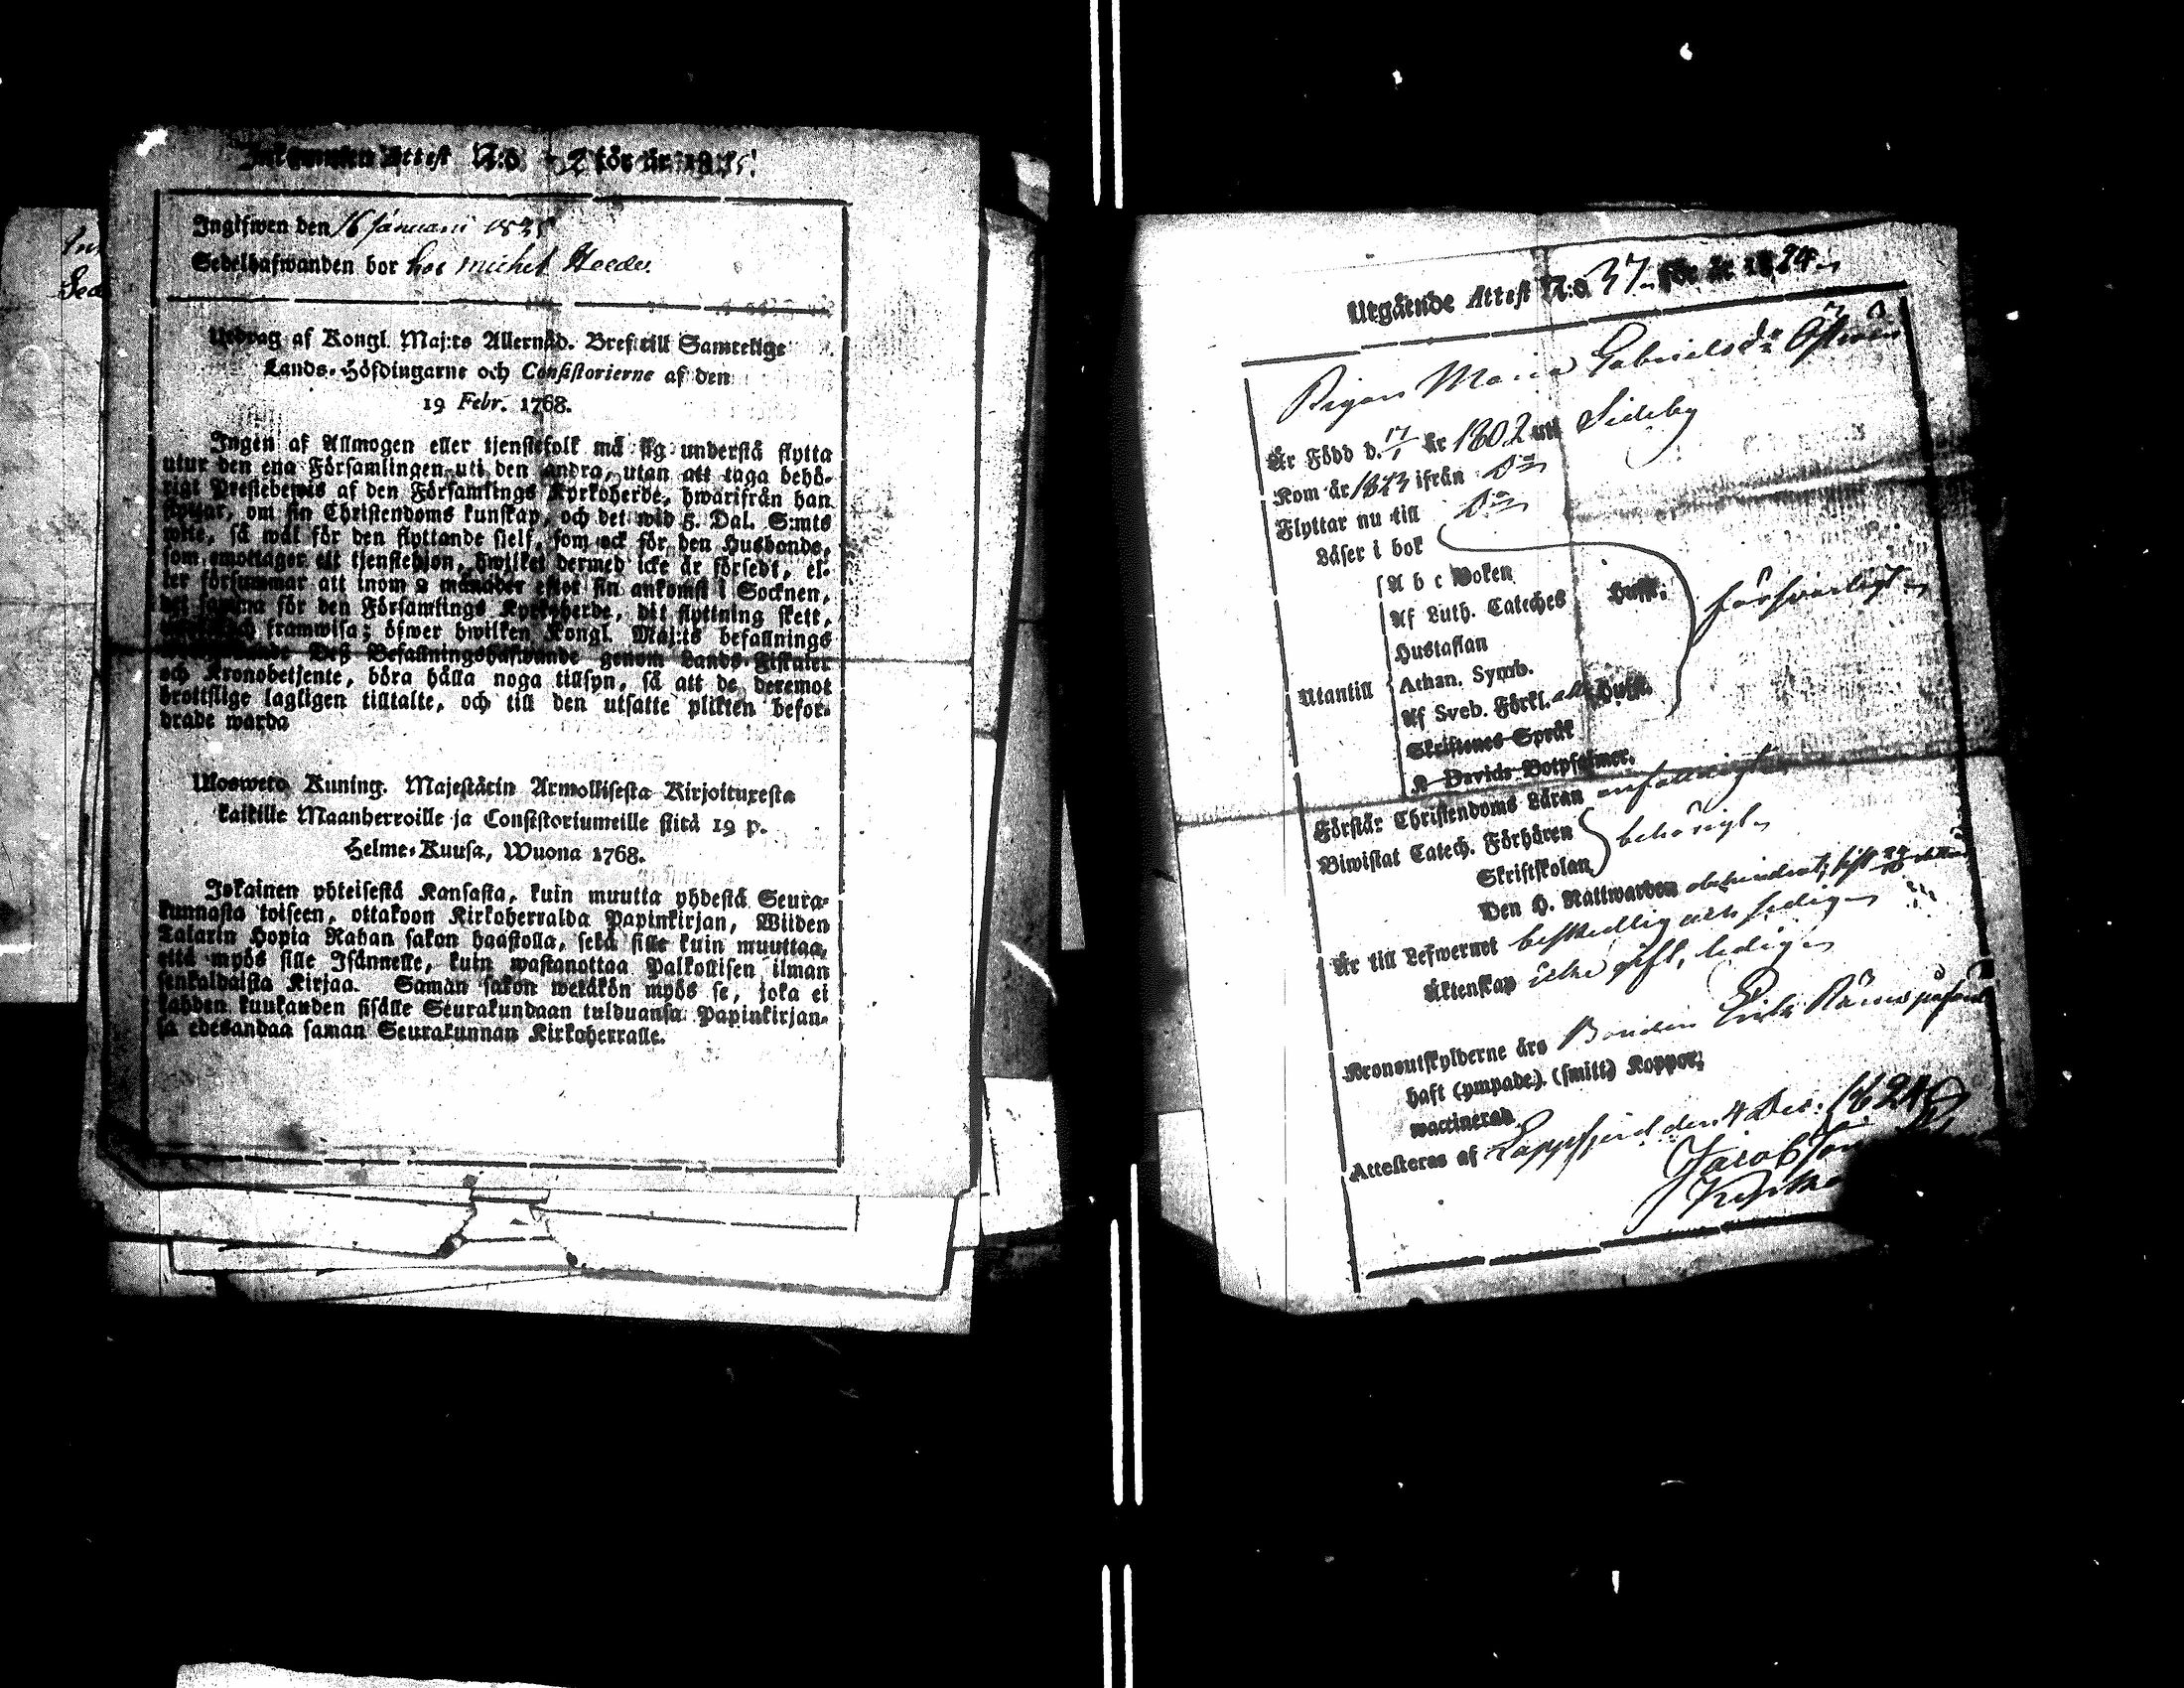 Inkommen Attest N:o 2 för år 1825.
Ingifwen den 16 Januarii 1825
Sedelhafwanden bor hos Michel
Utdrag af Kongl. Maj:ts Allernåd. Bref till Samtelige
Lands-Höfdingarne och Consistorierne af den
19 Febr. 1768.
Ingen af Allmogen eller tjenstefolk må sig understå flytta
utur den ena Församlingen uti den andra, utan att taga behö-
rigt Prestebewis af den Församlings Kyrkoherde, hwarifrån han
flyttar, om sin Christendoms kunskap, och det wid 5. Dal. S:mts
wite, så wäl för den flyttande sielf, som ock för den Husbonde,
som emottager ett tjenstehjon, hwilket dermed icke är försedt, el-
ler försummar att inom 2 månader efter sin ankomst i Socknen,
det samma för den Församlings Kyrkoherde, dit flyttning skett,
framwisa; öfwer hwilken Kongl. Maj:ts befallnings
Deß Befallningshafwande genom Lands-Fiskaler
och Kronobetjente, böra hålla noga tillsyn, så att de deremot
brottslige lagligen tilltalte, och till den utsatte plikten befor-
drade warda
Ulosweto Kuning. Majestätin Armollisesta Kirjoituxesta
kaikille Maanherroille ja Consistoriumeille siitä 19 p.
Helme-Kuusa, Wuona 1768.
Jokainen yhteisestä Kansasta, kuin muutta yhdestä Seura-
kunnasta toiseen, ottakoon Kirkoherralda Papinkirjan, Wiiden
Talarin Hopia Rahan sakon haastolla, sekä sille kuin muuttaa,
että myös sille Isännelle, kuin wastanottaa Palkollisen ilman
senkaldaista Kirjaa. Saman sakon wetäkön myös se, joka ei
kahden kuukauden sisälle Seurakundaan tulduansa Papinkirjan-
sa edesandaa saman Seurakunnan Kirkoherralle.
Utgående Attest N:o 37 för år 1824
Pigan Maria Gabrielsdr
Är Född d. 17/1 år 1802 uti Sideby
Kom år 1823 ifrån Do
Flyttar nu till Do
Läser i bok
Utantill
A b c Boken
Af Luth. Cateches Huffl.
Hustaflan
Athan. Symb.
försvarligt
Af Sveb. Förkl. alla Huffl.
Skriftenes Språk
Davids Botpsalmer.
Förstår Christendoms Läran enfaldigt
Biwistat Catech. Förhören
Skriftskolan
behörigt
Den H. Nattwarden obehindrat, sist
Är till Lefwernet beskedlig och sedig
Äktenskap icke gift, ledig
Kronoutskylderne äro Bonden Erik
haft (ympade) (smitt) Koppor,
waccinerad
Attesteras af Lappfjerd den 4 Dec. 1824
Jacob